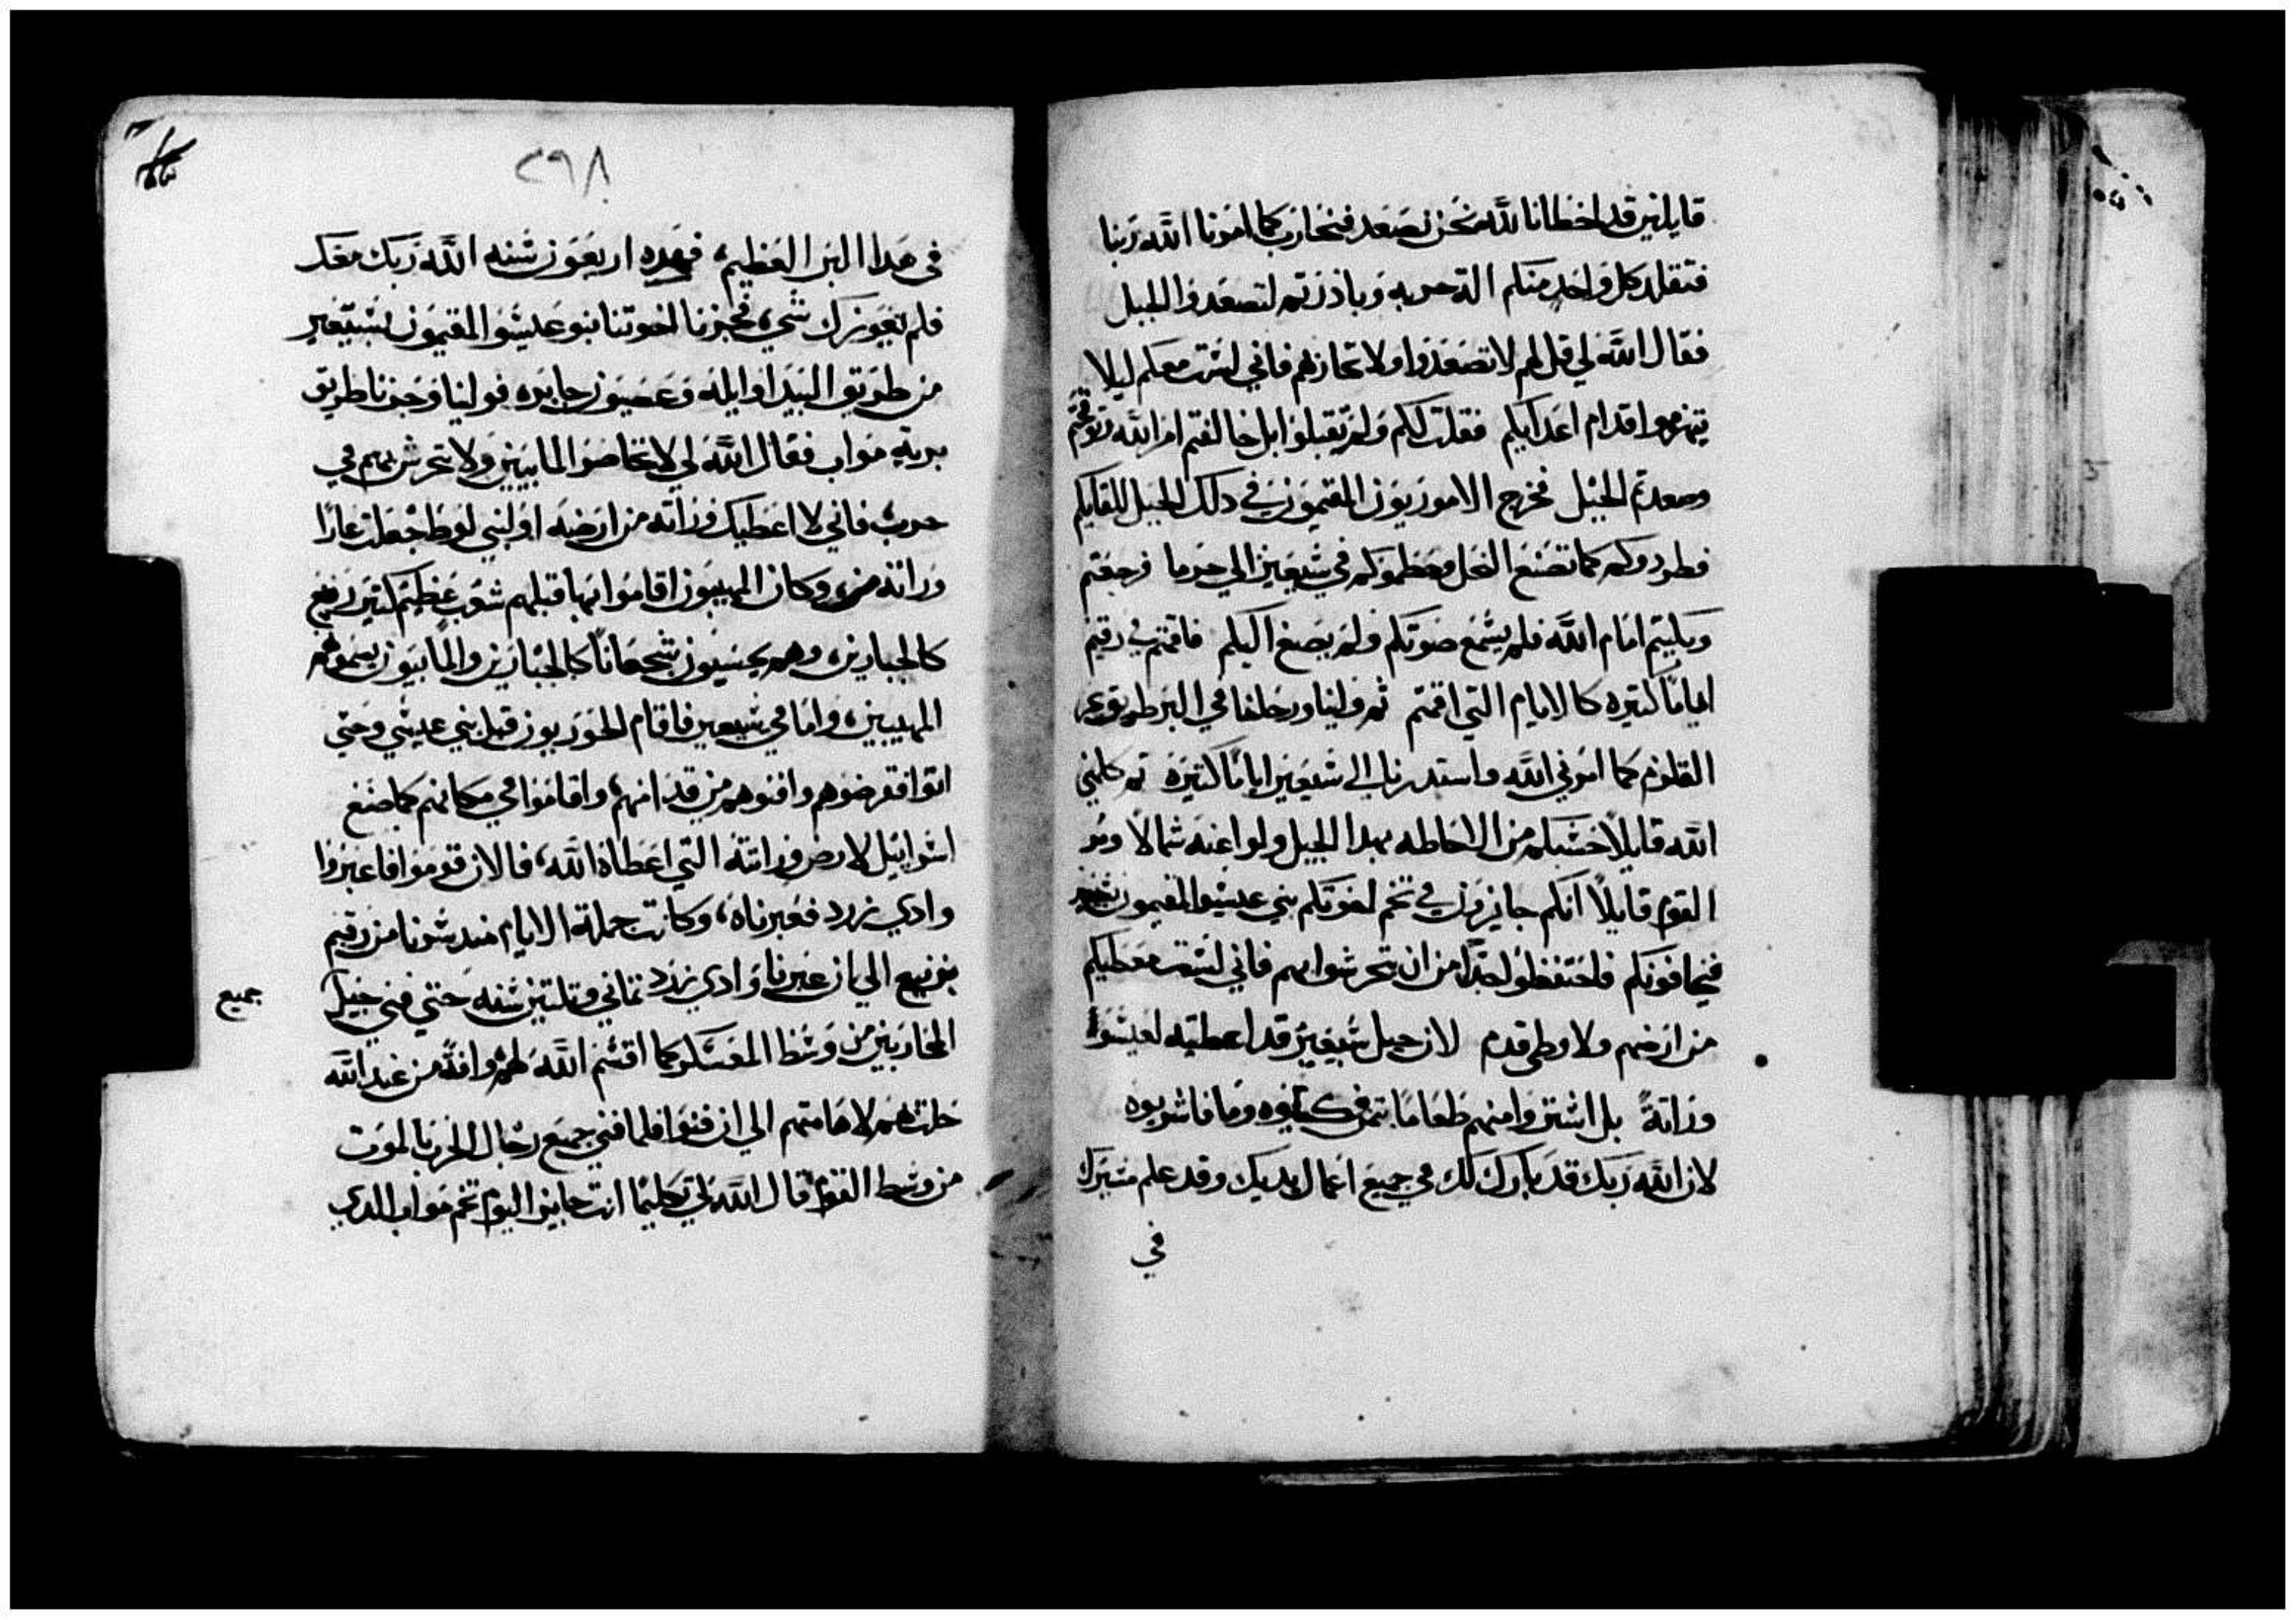 قايلين قد اخطانا لله نحن نصعد فنحارب كما امرنا الله ربنا
فتقلد كل واحد منكم الة حربه وبادرتم لتصعدوا الجبل
فقال الله لي قل لهم لا تصعدوا ولا تحاربهم فاني لست معكم ليلا
تنهزموا قدام اعدايكم فقلت لكم ولم تقبلوا بل خالفتم امر الله وتوقحتم
وصعدتم الجبل فخرج الاموريون المقيمون في دلك الجبل للقايكم
فطردوكم كما تصنع النحل وحطموكم في شيعين الي حرما فرجعتم
وبكيتم امام الله فلم يسمع صوتكم ولم يصغ اليكم فاقمتم في رقيم
اياماً كتيره كالايام التي اقمتم ثم ولينا ورحلنا في البر طريق بحر
القلزم كما امرني الله واستدرنا الي شيعين اياماً كتيرة ثم كلمني
الله قايلاً حسبكم من الاحاطه بهدا الجبل ولوا عنه شمالاً ومر
القوم قايلاً انكم جايزون في تخم اخوتكم بني عيسو المقيمون
فيخافونكم فاحتفظوا جداً من ان تتحرشوا بهم فاني لست معطيكم
من ارضهم ولا وطي قدم لان جبل شيعين قد اعطيته لعيسو
وراتةً بل اشتروا منهم طعاماً بتمن وما فاشربوه
لان الله ربك قد بارك لك في جميع اعمال يديك وقد علم مسيرك
في
٢٩٨
في هدا البر العظيم، فهده اربعون سنه الله ربك معك
فلم يعوزك شي، فجزنا اخوتنا بنو عيسو المقيمون بشيعين
من طريق البيدا وايله وعصيون جابره فولينا وجزنا طريق
برية مواب فقال الله لي لا تخاصموا المابيين ولا تتحرش بهم في
حرب فاني لا اعطيك وراته من ارضه اد لبني لوط جعلت عارا
وراتة وكان المهيبون اقاموا بها قبلهم شعب عظيم كتير رفيع
كالجبارين، وهم يحسبون شجعاناً كالجبارين والمابيون يسموهم
المهيبين، واما في شيعين فاقام الحوريون قبل بني عيسو وحتي
اتوا فقرضوهم وافنوهم من قدامهم، واقاموا في مكانهم كما صنع
اسراييل لارض وراتته التي اعطاه الله، فالان قوموا فاعبروا
وادي زرد فعبرناه، وكانت جملة الايام مند سرنا من رقيم
برنيع الي ان عبرنا وادي زرد تماني وتلتين سنه حتي فني جيل
جميع
المحاربين من وسط المعسكر كما اقسم الله لهم وافةً من عند الله
حلت بهم لاهامتهم الي ان فنوا فلما فني جميع رجال الحرب بالموت
من وسط القوم قال الله لي تكليماً انت جايز اليوم تخم مواب الدي